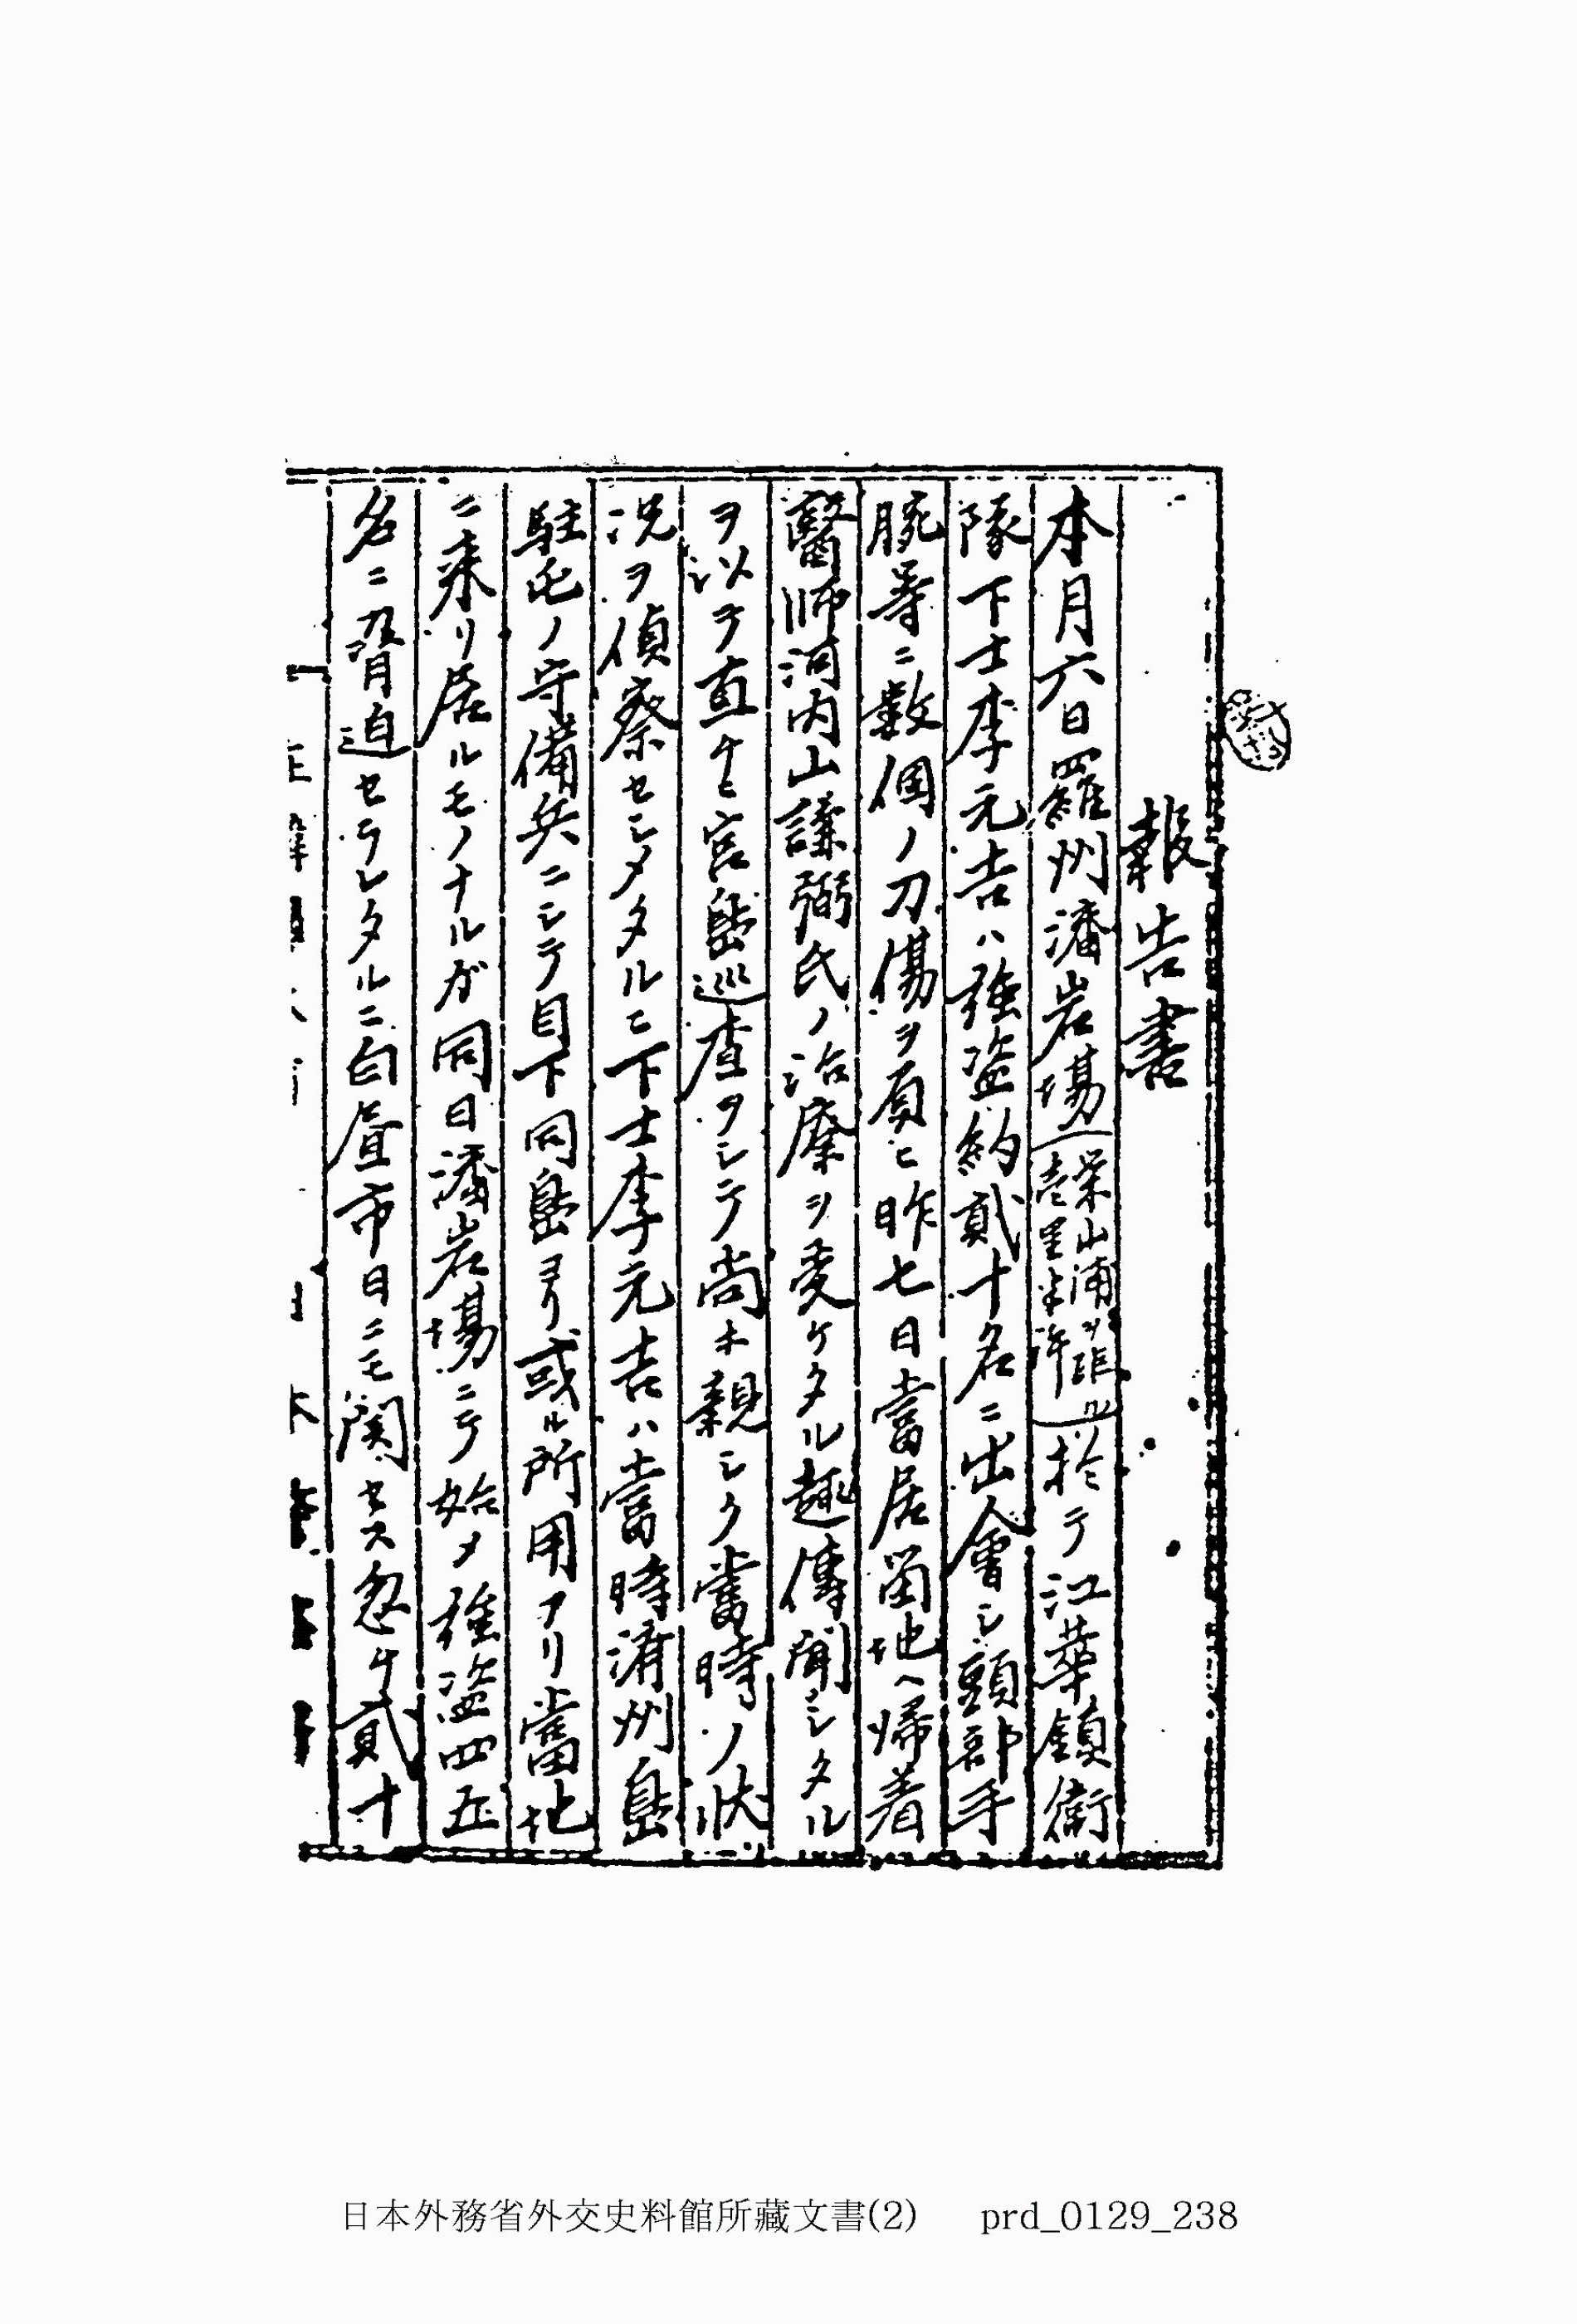 報告書
本月六日羅州潘岩場(榮山浦ヲ距ル壱里半許)於テ江華鎮衛
隊下士李元吉ハ強盗約貳十名ニ出會シ頭部手
腕等ニ数個ノ刀傷ヲ負ヒ昨七日當居留地ヘ帰着
醫師河内山謙弼氏ノ治療ヲ受ケタル趣傳聞シタル
ヲ以テ直ケニ宮島巡査ヲシテ尚ホ親シク當時ノ状
況ヲ偵察セシメタルニ下士李元吉ハ當時済州島
駐屯ノ守備兵ニシテ目下同島ヨリ或ル所用アリ當地
ニ来リ居ルモノナルガ同日潘岩場ニテ始メ強盗四五
名ニ脅迫セラレタルニ白昼市日ニモ関セス忽ケ貳十
日本外務省外交史料館所藏文書(2) prd_0129_238